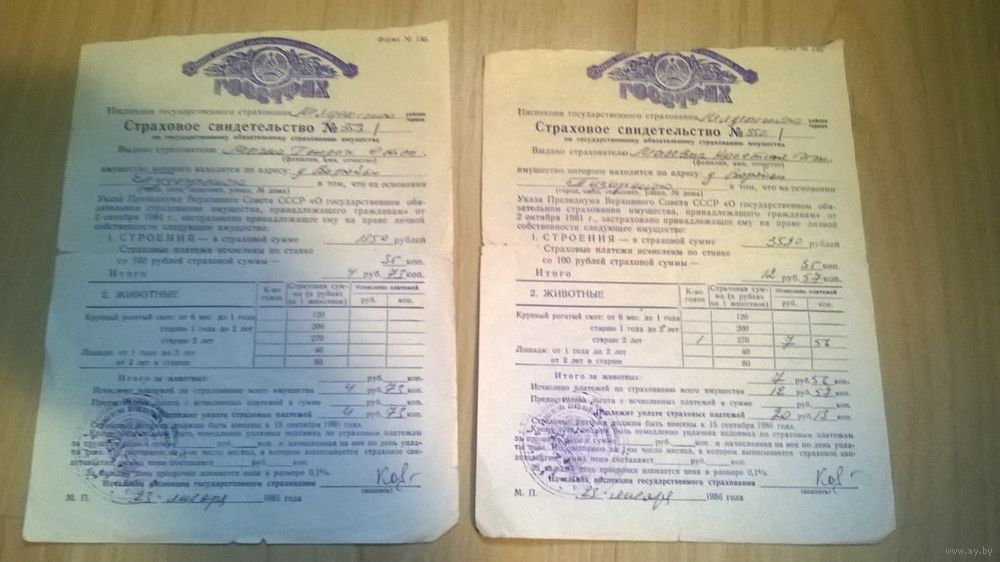 Форма № 130.
ГОССТРАХ
Инспекция государственного страхования
района
города
Страховое свидетельство № 553/
по государственному обязательному страхованию имущества
Выдано страхователю
(фамилия, имя, отчество)
имущество которого находится по адресу: д.
в том, что на основании
(город, село, сельсовет, улица, № дома)
Указа Президиума Верховного Совета СССР «О государственном обя-
зательном страховании имущества, принадлежащего гражданам» от
2 октября 1981 г., застраховано принадлежащее ему на праве личной
собственности следующее имущество:
1. СТРОЕНИЯ — в страховой сумме 1350 рублей
Страховые платежи исчислены по ставке
со 100 рублей страховой суммы — 35 коп.
Итого 4 руб. 73 коп.
2. ЖИВОТНЫЕ
К-во голов
Страховая сум-
ма (в рублях
на 1 животное)
Исчислено платежей
руб. коп.
Крупный рогатый скот: от 6 мес. до 1 года 120
старше 1 года до 2 лет 200
старше 2 лет 270
Лошади: от 1 года до 2 лет 40
от 2 лет и старше 80
Итого за животных: руб. коп.
Исчислено платежей по страхованию всего имущества 4 руб. 73 коп.
Предоставлена льгота с исчисленных платежей в сумме руб. коп.
Подлежит уплате страховых платежей 4 руб. 73 коп.
Страховые платежи должны быть внесены к 15 сентября 1986 года.
Кроме того, должны быть немедленно уплачена недоимка по страховым платежам
за прошлые годы в сумме руб. коп. и начисленная на нее по день упла-
ты пеня. Исчисленная на 1-ое число месяца, в котором выписывается страховое сви-
детельство, сумма пени составляет руб. коп.
За каждый день просрочки взимается пеня в размере 0,1%.
Начальник инспекции государственного страхования
(подпись)
М. П. 23 января 1986 года
Форма № 130
ГОССТРАХ
Инспекция государственного страхования
района
города
Страховое свидетельство № 550/
по государственному обязательному страхованию имущества
Выдано страхователю
(фамилия, имя, отчество)
имущество которого находится по адресу: д.
в том, что на основании
(город, село, сельсовет, улица, № дома)
Указа Президиума Верховного Совета СССР «О государственном обя-
зательном страховании имущества, принадлежащего гражданам» от
2 октября 1981 г., застраховано принадлежащее ему на праве личной
собственности следующее имущество:
1. СТРОЕНИЯ — в страховой сумме 3590 рублей
Страховые платежи исчислены по ставке
со 100 рублей страховой суммы — 35 коп.
Итого 12 руб. 57 коп.
2. ЖИВОТНЫЕ
К-во голов
Страховая сум-
ма (в рублях
на 1 животное)
Исчислено платежей
руб. коп.
Крупный рогатый скот: от 6 мес. до 1 года 120
старше 1 года до 2 лет 200
старше 2 лет 1 270 7 56
Лошади: от 1 года до 2 лет 40
от 2 лет и старше 80
Итого за животных: 7 руб. 56 коп.
Исчислено платежей по страхованию всего имущества 12 руб. 57 коп.
Предоставлена льгота с исчисленных платежей в сумме руб. коп.
Подлежит уплате страховых платежей 20 руб. 13 коп.
Страховые платежи должны быть внесены к 15 сентября 1986 года.
Кроме того, должны быть немедленно уплачена недоимка по страховым платежам
за прошлые годы в сумме руб. коп. и начисленная на нее по день упла-
ты пеня. Исчисленная на 1-ое число месяца, в котором выписывается страховое сви-
детельство, сумма пени составляет руб. коп.
За каждый день просрочки взимается пеня в размере 0,1%.
Начальник инспекции государственного страхования
(подпись)
М. П. 23 января 1986 года
www.ay.by